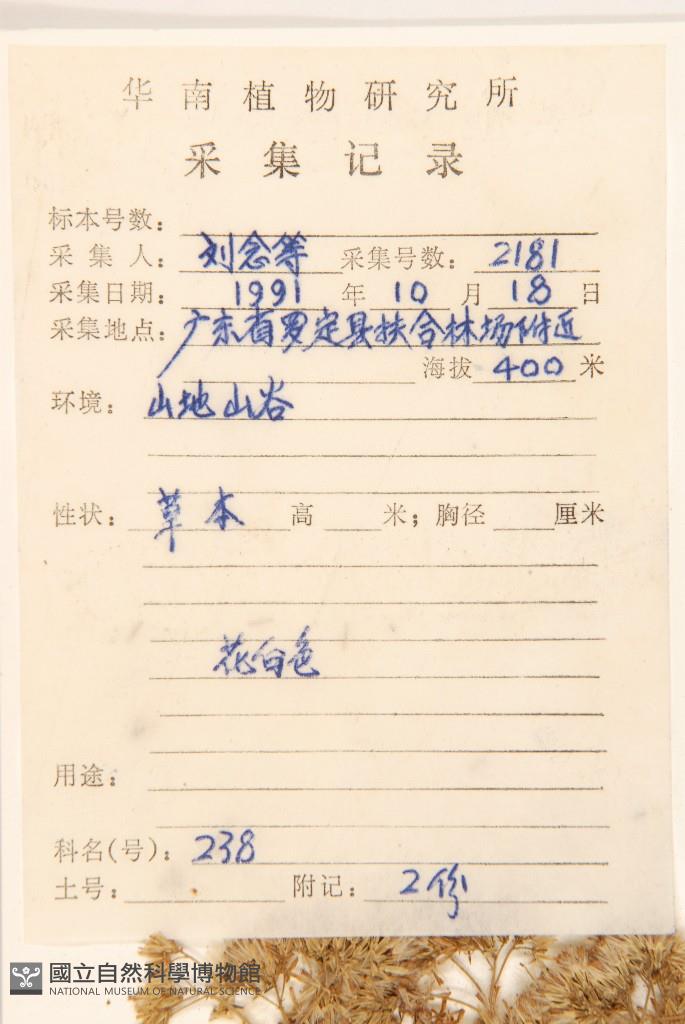 华南植物研究所
采集记录
标本号数:
采集人: 刘念等 采集号数: 2181
采集日期: 1991 年 10 月 18 日
采集地点: 广东省罗定县扶合林场附近
海拔 400 米
环境: 山地山谷
性状: 草本 高 米; 胸径 厘米
花白色
用途:
科名(号): 238
土号: 附记: 2份
國立自然科學博物館
NATIONAL MUSEUM OF NATURAL SCIENCE